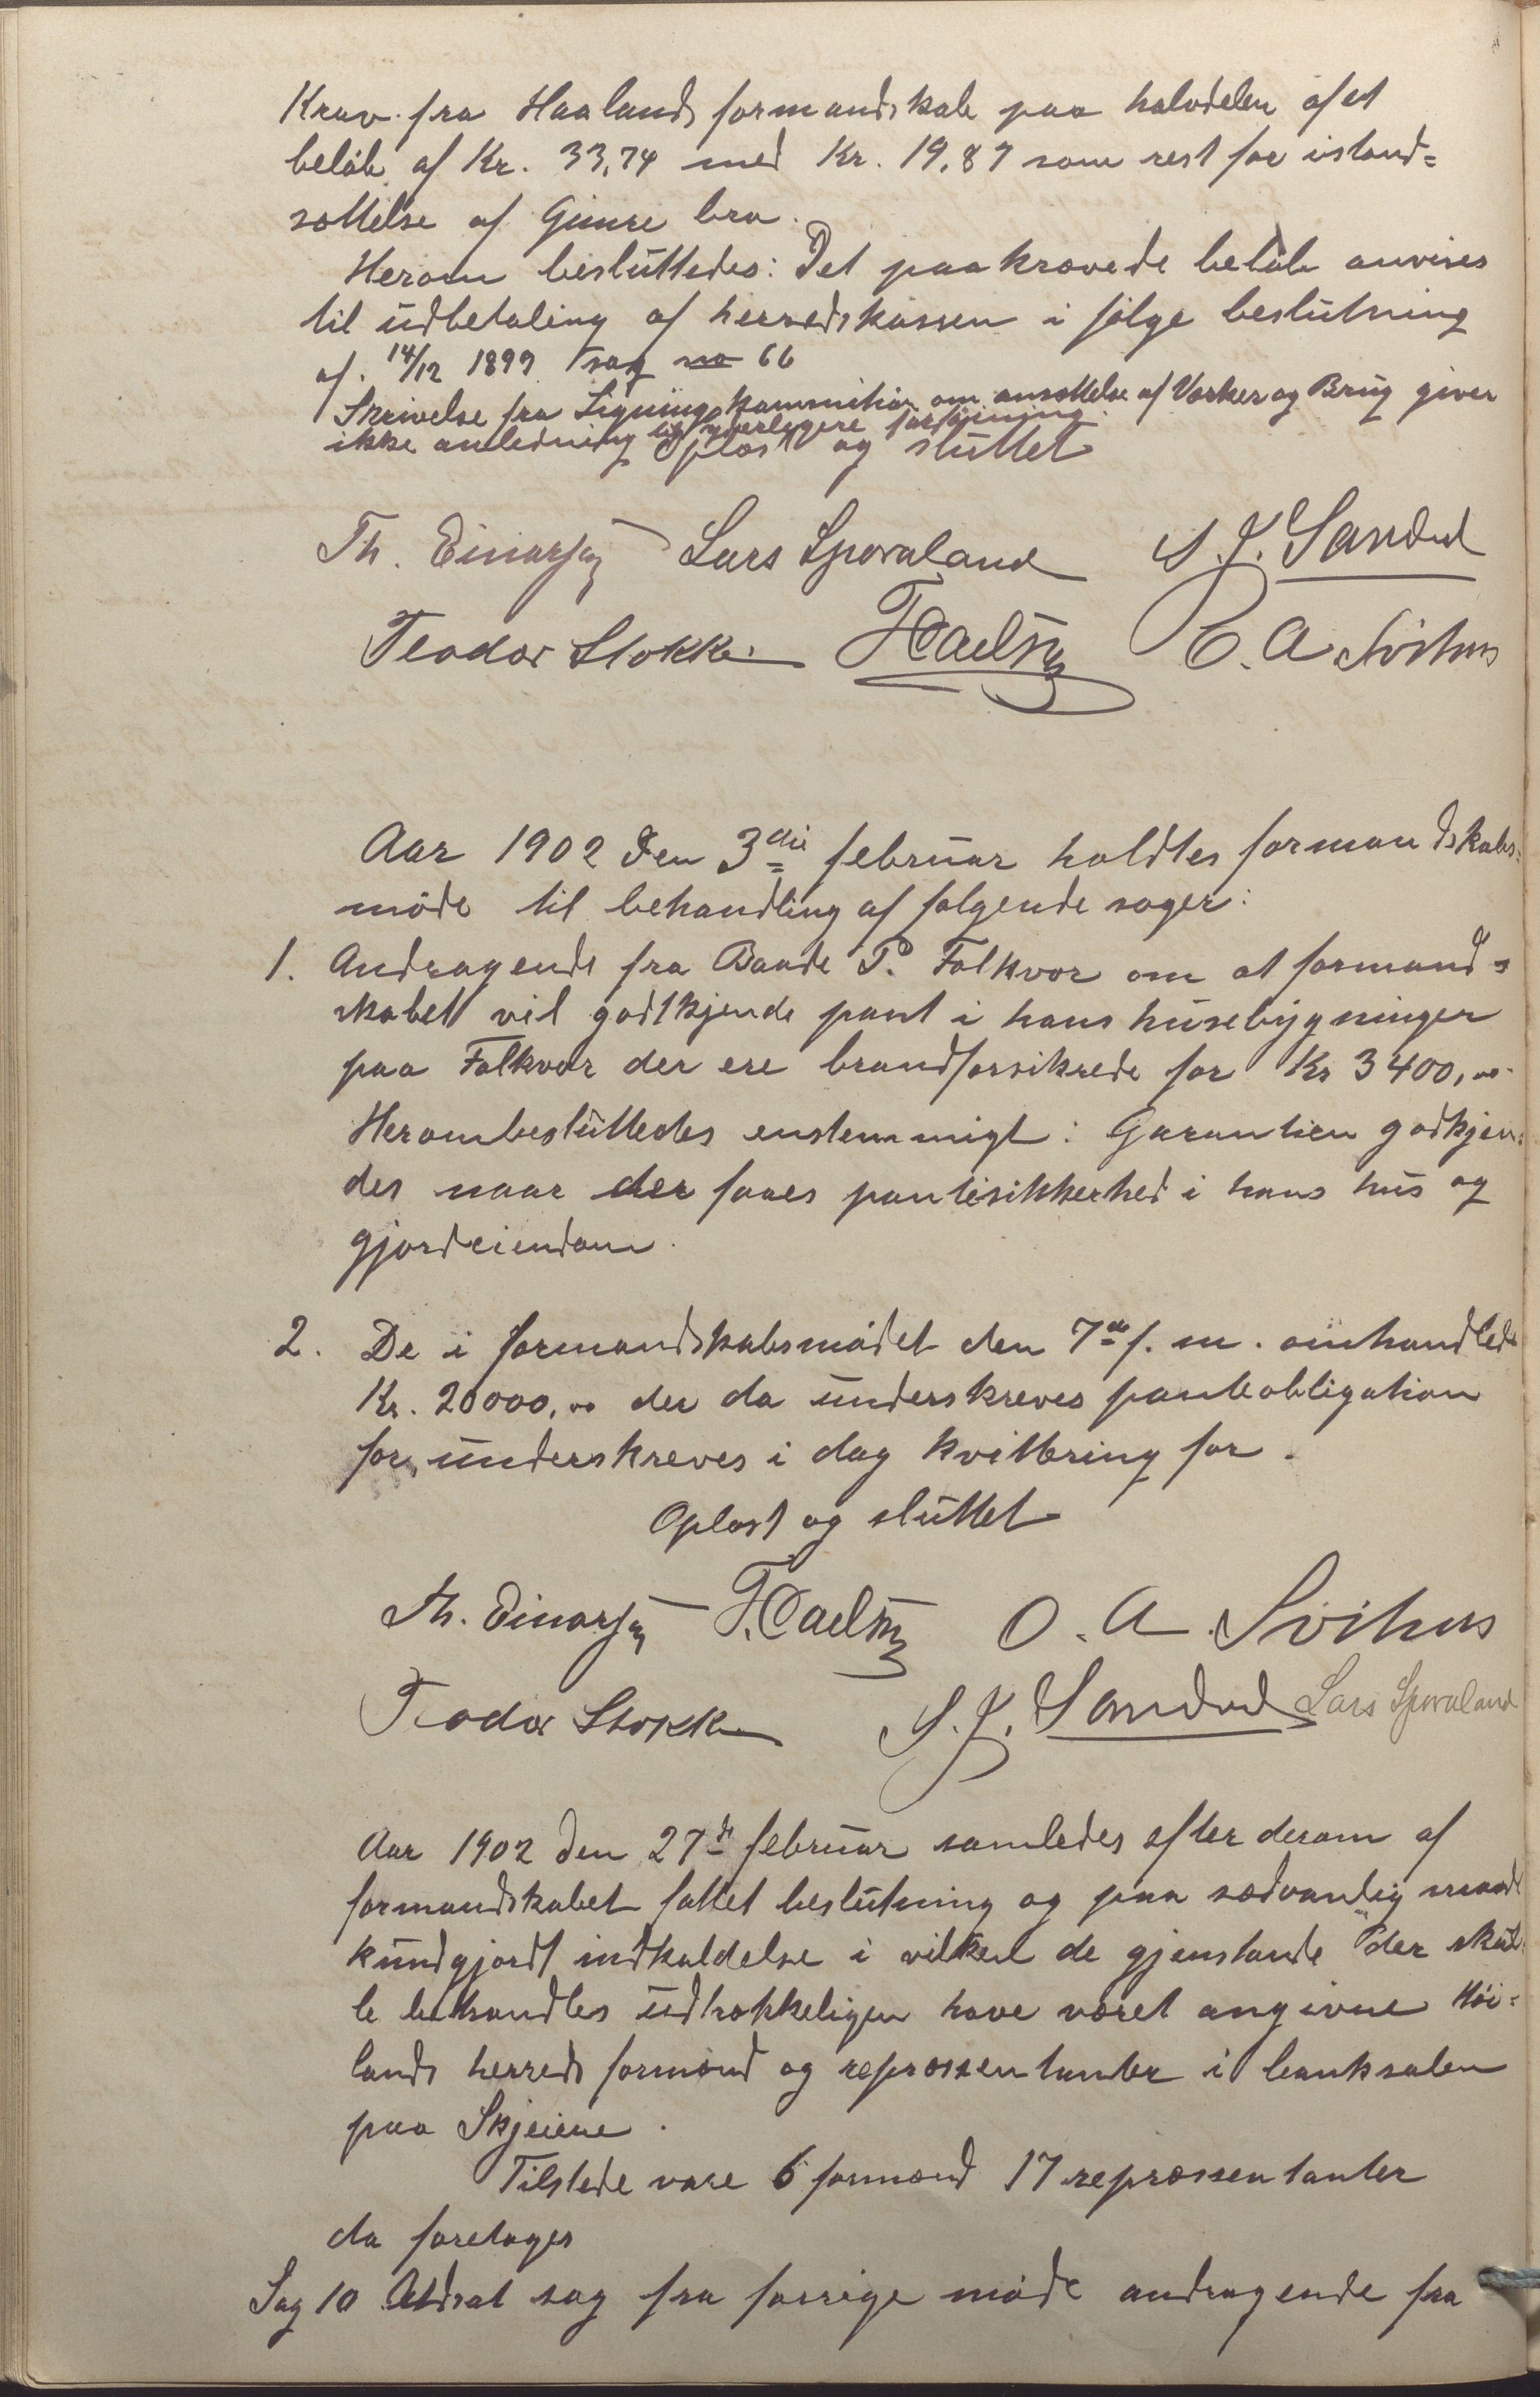 Krav fra Haalands formandskab paa halvdelen af et
beløb af Kr. 33,74 med Kr. 19,87 som rest for istand=
sættelse af Gimre bro.
Herom besluttedes: Det paakrævede beløb anvises
til udbetaling af herredskassen i følge beslutning
af 14/12 1899 sag no 66
Skrivelse fra Ligningskommition om ansættelse af Værker og Brug giver
ikke anledning til yderligere forføining.
Oplæst og sluttet
Th. Einarsen Lars Sporaland S. J. Sandved
Teodor Stokke O. A Svihus
Aar 1902 den 3die februar holdtes formandskabs=
møde til behandling af følgende sager:
1. Andragende fra Baade P. Folkvor om at formand=
skabet vil godtkjende pant i hans husebygninger
paa Folkvor der ere brandforsikrede for Kr 3400,00.
Herom besluttedes enstemmigt: Garantien godkjen=
des naar der faaes pantesikkerhed i hans hus og
gjordeiendom.
2. De i formandskabsmødet den 7de f. m. omhandlede
Kr. 20000,00 der da underskreves panteobligation
for, underskreves i dag kvittering for.
Oplæst og sluttet
Th. Einarsen O. A. Svihus
Teodor Stokke S. J. Sandved Lars Sporaland
Aar 1902 den 27de februar samledes efter derom af
formandskabet fattet beslutning og paa sædvanlig maade
kundgjordt indkaldelse i vilken de gjenstande der skul=
le behandles udtrøkkeligen have været angivne Høi=
lands herreds formænd og repræssentanter i banksalen
paa Skjeiene.
Tilstede vare 6 formænd 17 repræssentanter
da foretoges
Sag 10 Udsat sag fra forrige møde andragende fra